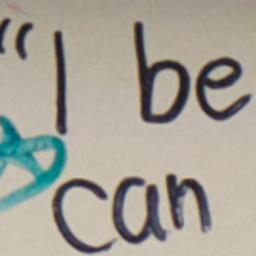 “I be
can